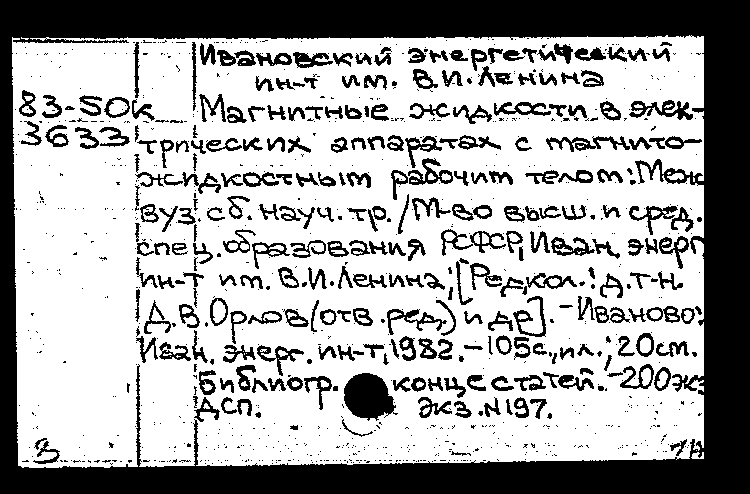 Ивановский энергетический
ин-т им. В.И.Ленина
83-5ок
3633
Магнитные жидкости в элек-
трических аппаратах с магнито-
жидкостным рабочим телом: Меж
вуз. сб. науч. тр. / М-во высш. и сред.
спец. образования РСФСР, Иван. энерг
ин-т им. В.И.Ленина; [Редкол.: д.т.н.
Д.В.Орлов (отв. ред.) и др]. - Иваново:
Иван. энерг. ин-т, 1982. - 105с., ил.; 20см.
Библиогр. конце статей. - 200экз
ДСП. Экз. N197.